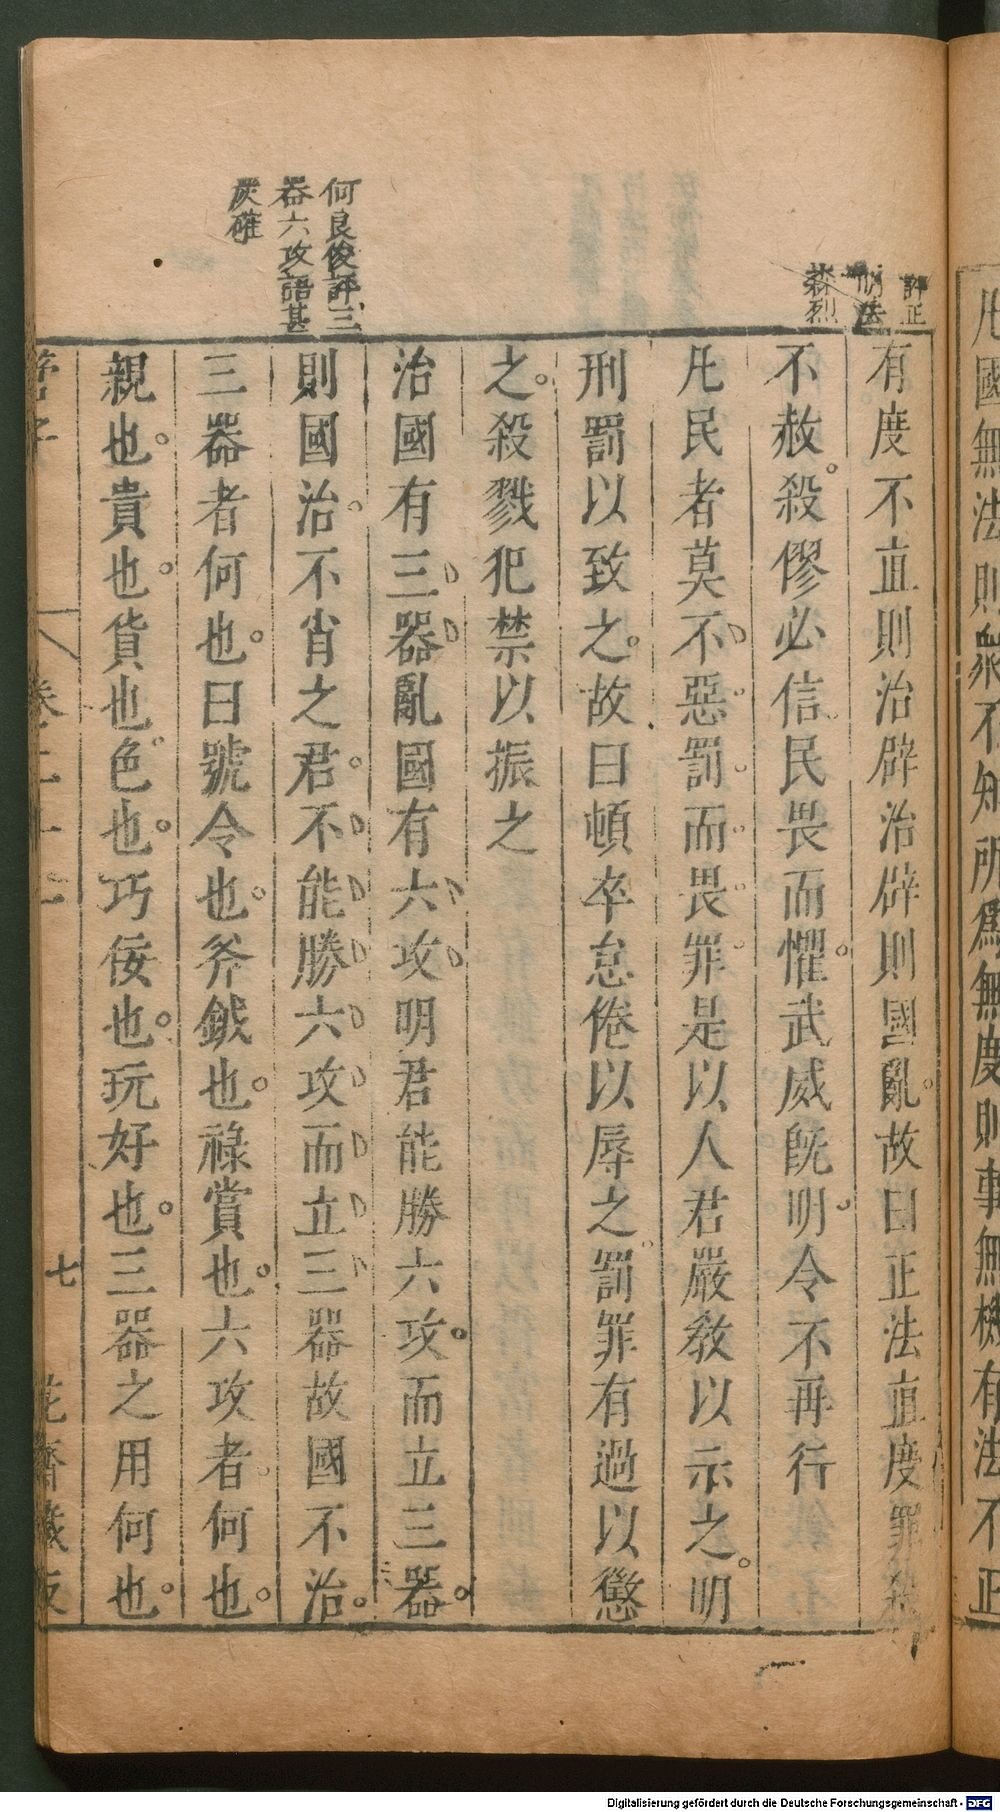 凡國無法則衆不知所爲無度則事無機有法不正
評正
明法
森烈
有度不直則治辟治辟則國亂故曰正法直度罪殺
不赦殺僇必信民畏而懼武威旣明令不再行
凡民者莫不惡罰而畏罪是以人君嚴敎以示之明
刑罰以致之故曰頓卒怠倦以辱之罰罪有過以懲
之殺戮犯禁以振之
何良俊評三
器六攻語甚
確
治國有三器亂國有六攻明君能勝六攻而立三器
則國治不肖之君不能勝六攻而立三器故國不治
三器者何也曰號令也斧鉞也祿賞也六攻者何也
親也貴也貨也色也巧佞也玩好也三器之用何也
管子 卷二十一 七 花齋藏板
Digitalisierung gefördert durch die Deutsche Forschungsgemeinschaft - DFG